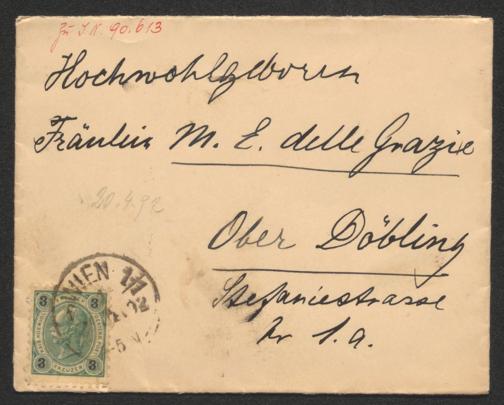 Zu I.N. 90.613
Hochwohlgeboren
Fräulein M. E. delle Grazie
20.4.92
Ober Döbling
Stefaniestrasse
Nr 1.a.
WIEN 1/1
92
3 3
3 KREUZER 3